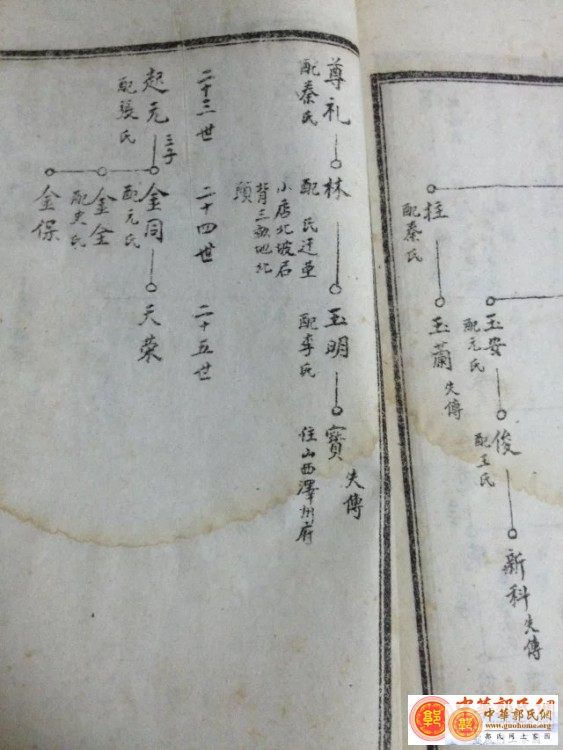 玉安
配元氏
俊
配王氏
新科 失傳
柱
配秦氏
玉蘭 失傳
尊礼
配秦氏
林
配 氏迁葬
小店北坡石
背三畝地北
頭
玉明
配李氏
寳 失傳
住山西澤州府
二十三世
二十四世
二十五世
起元 三子
配張氏
金同
配元氏
金全
配史氏
金保
天荣
中華郭氏網
www.guohome.org
郭氏网上家园